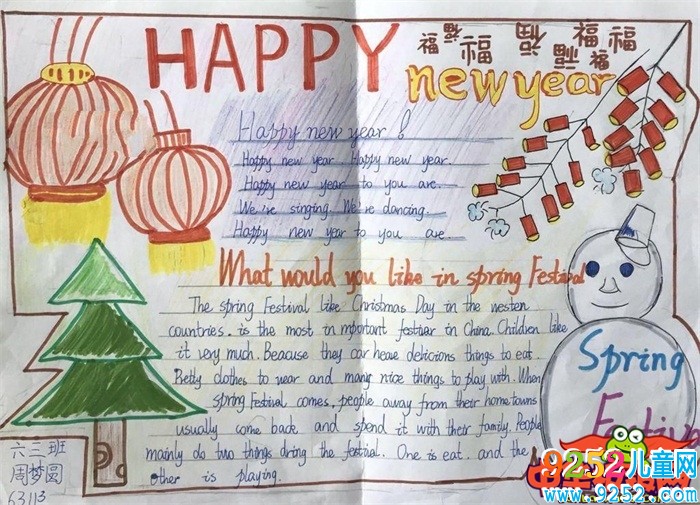 HAPPY
福 福 福 福 福 福 福 福
new year
Happy new year !
Happy new year. Happy new year.
Happy new year to you are.
We're singing. We're dancing.
Happy new year to you are.
What would you like in spring Festival
The spring Festival like Christmas Day in the westen
countries. is the most in mportant festiver in China. Children like
it very much. Beacuse they car heave delicions things to eat.
Pretty clothes to wear and many nice things to play with. When
spring Festival comes, people away from their home towns
usually come back and spend it with their family. People
mainly do two things dring the festival. One is eat. and the
other is playing.
Spring
Festiva
六三班
周梦圆
63113
9252儿童网
www.9252.com